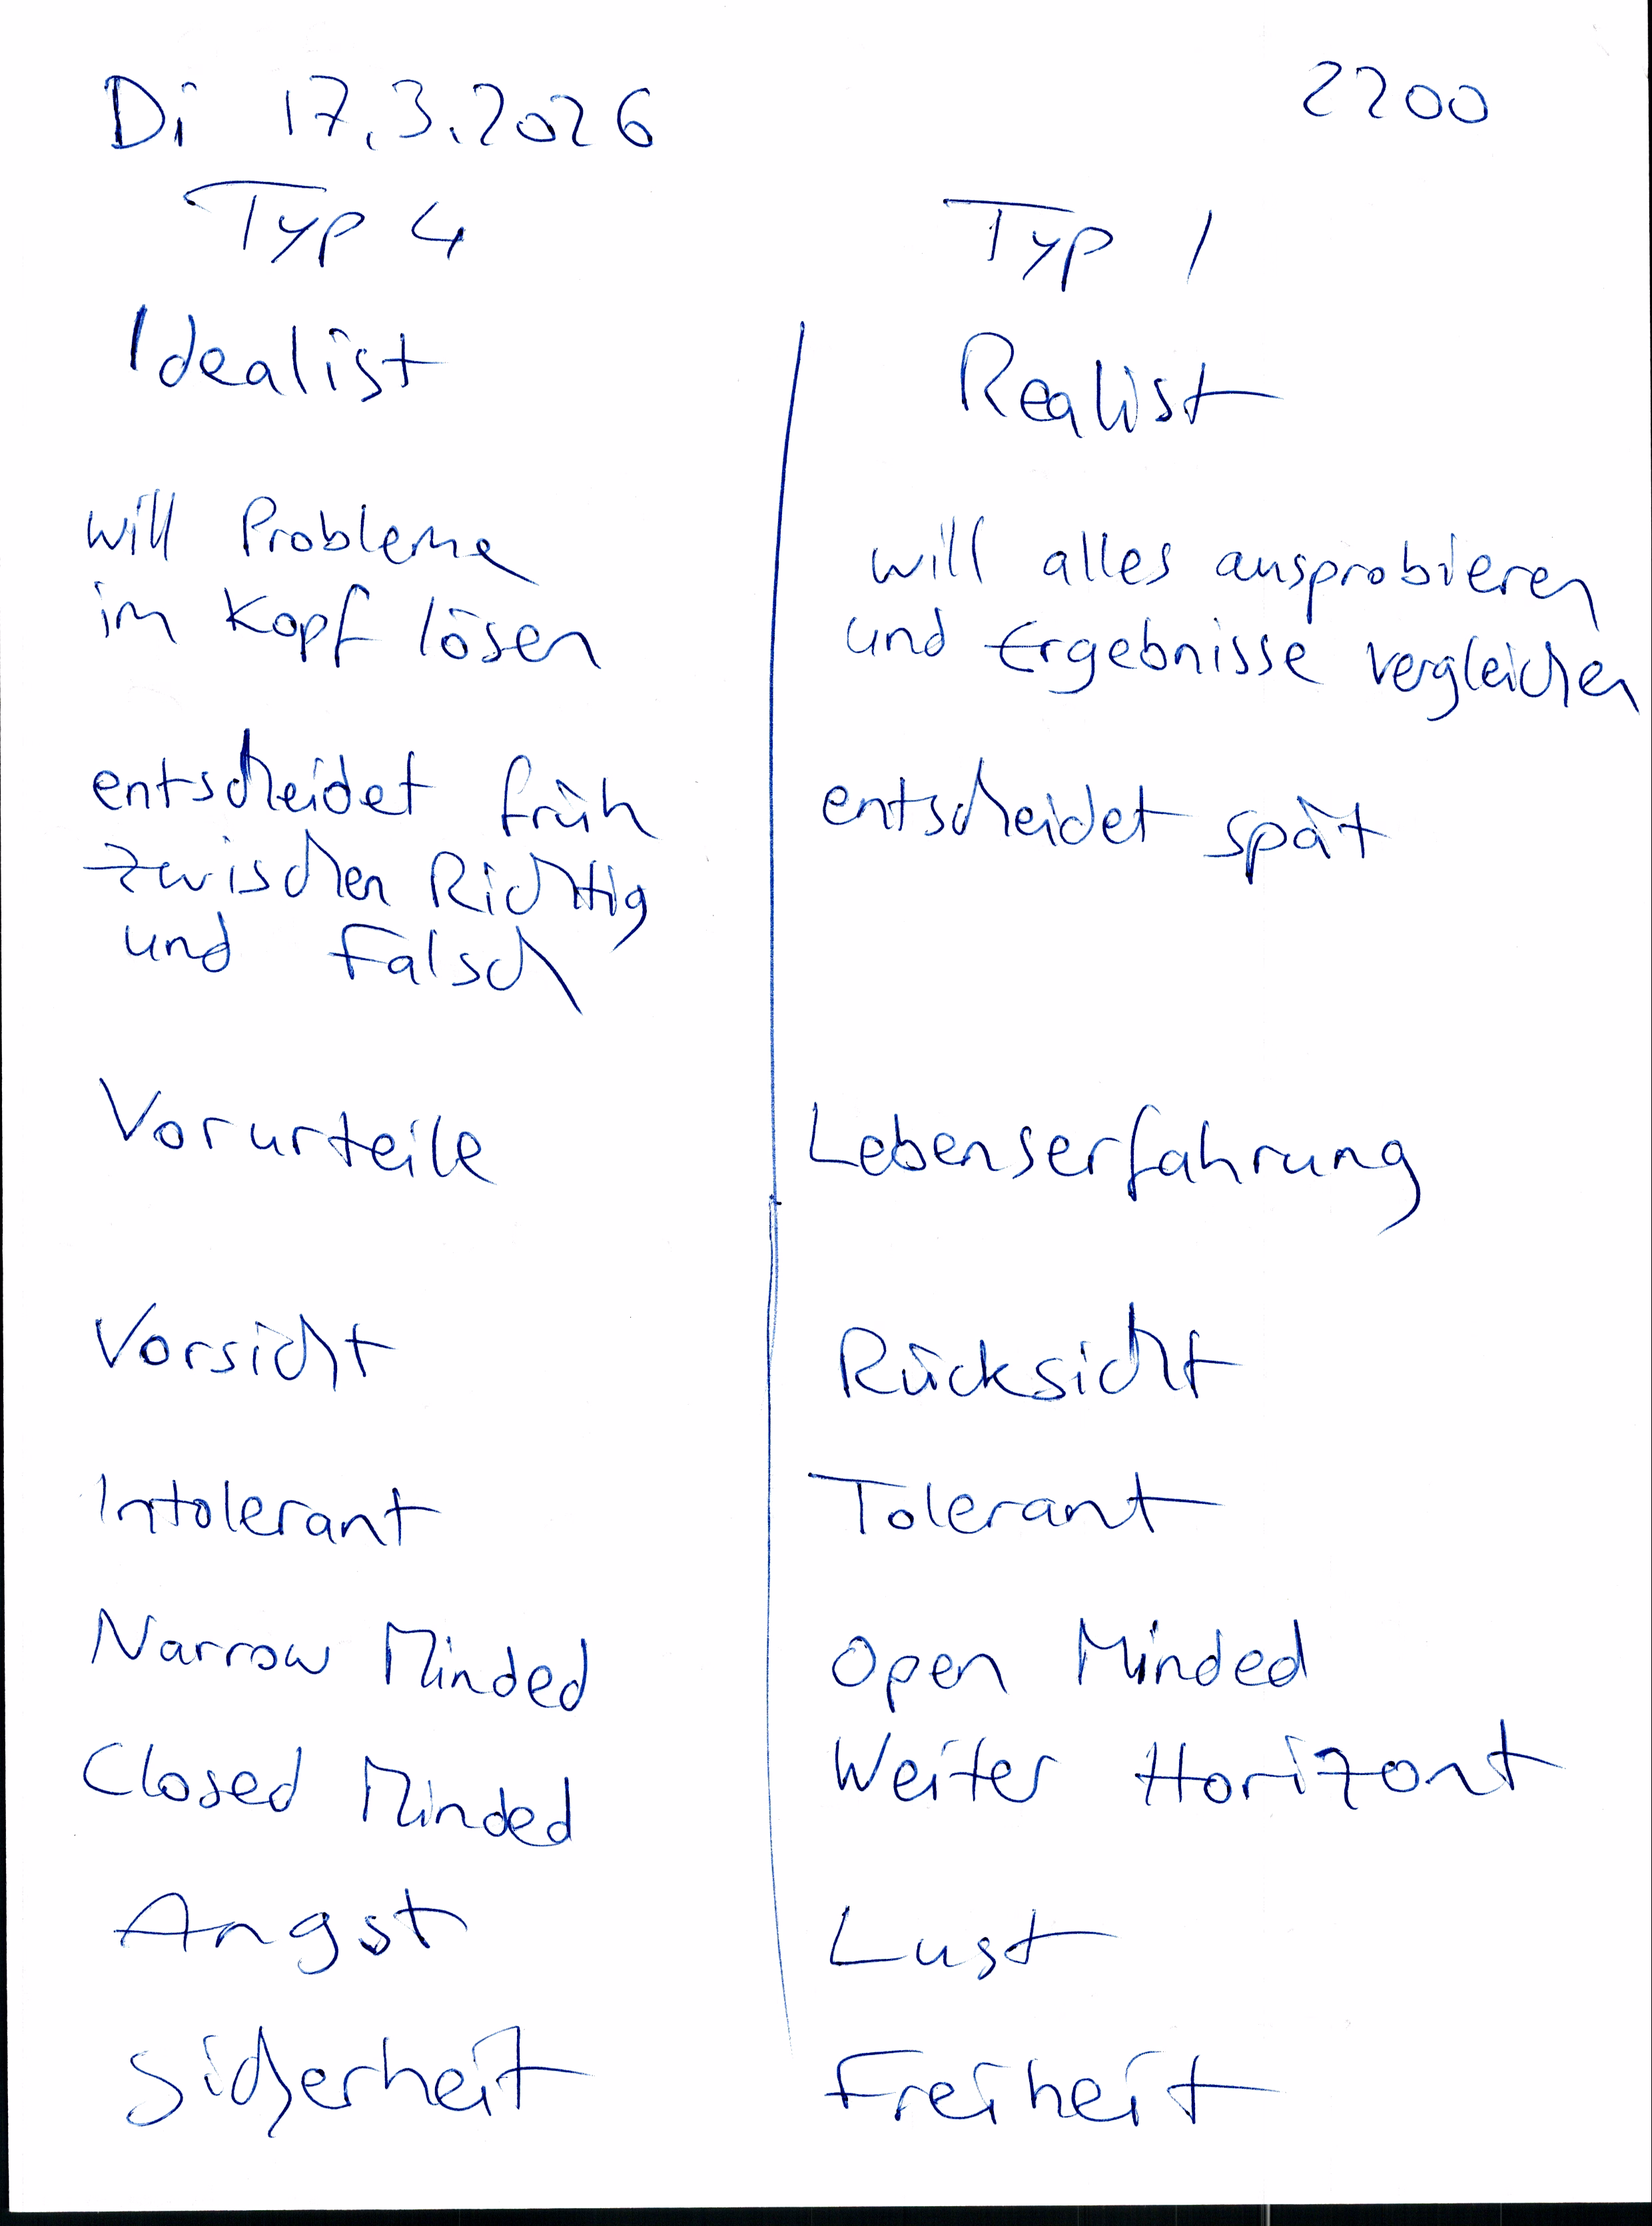 Di 17.3.2026
2200
Typ 4
Idealist
will Probleme
im Kopf lösen
entscheidet früh
zwischen Richtig
und Falsch
Vorurteile
Vorsicht
Intolerant
Narrow Minded
Closed Minded
Angst
Sicherheit
Typ 1
Realist
will alles ausprobieren
und Ergebnisse vergleichen
entscheidet spät
Lebenserfahrung
Rücksicht
Tolerant
Open Minded
Weiter Horizont
Lust
Freiheit